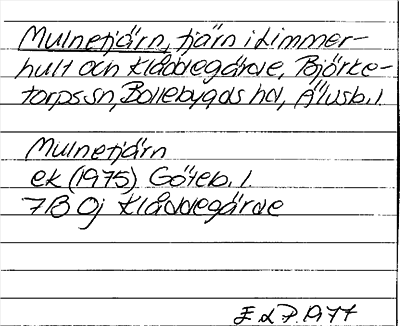 Mulnetjärn, tjärn i Limmer-
hult och Kläddegärde, Björke-
torps sn, Bollebygds hd, Älvsb. l.
Mulnetjärn
ek (1975) Göteb. l.
7B 0j Kläddegärde